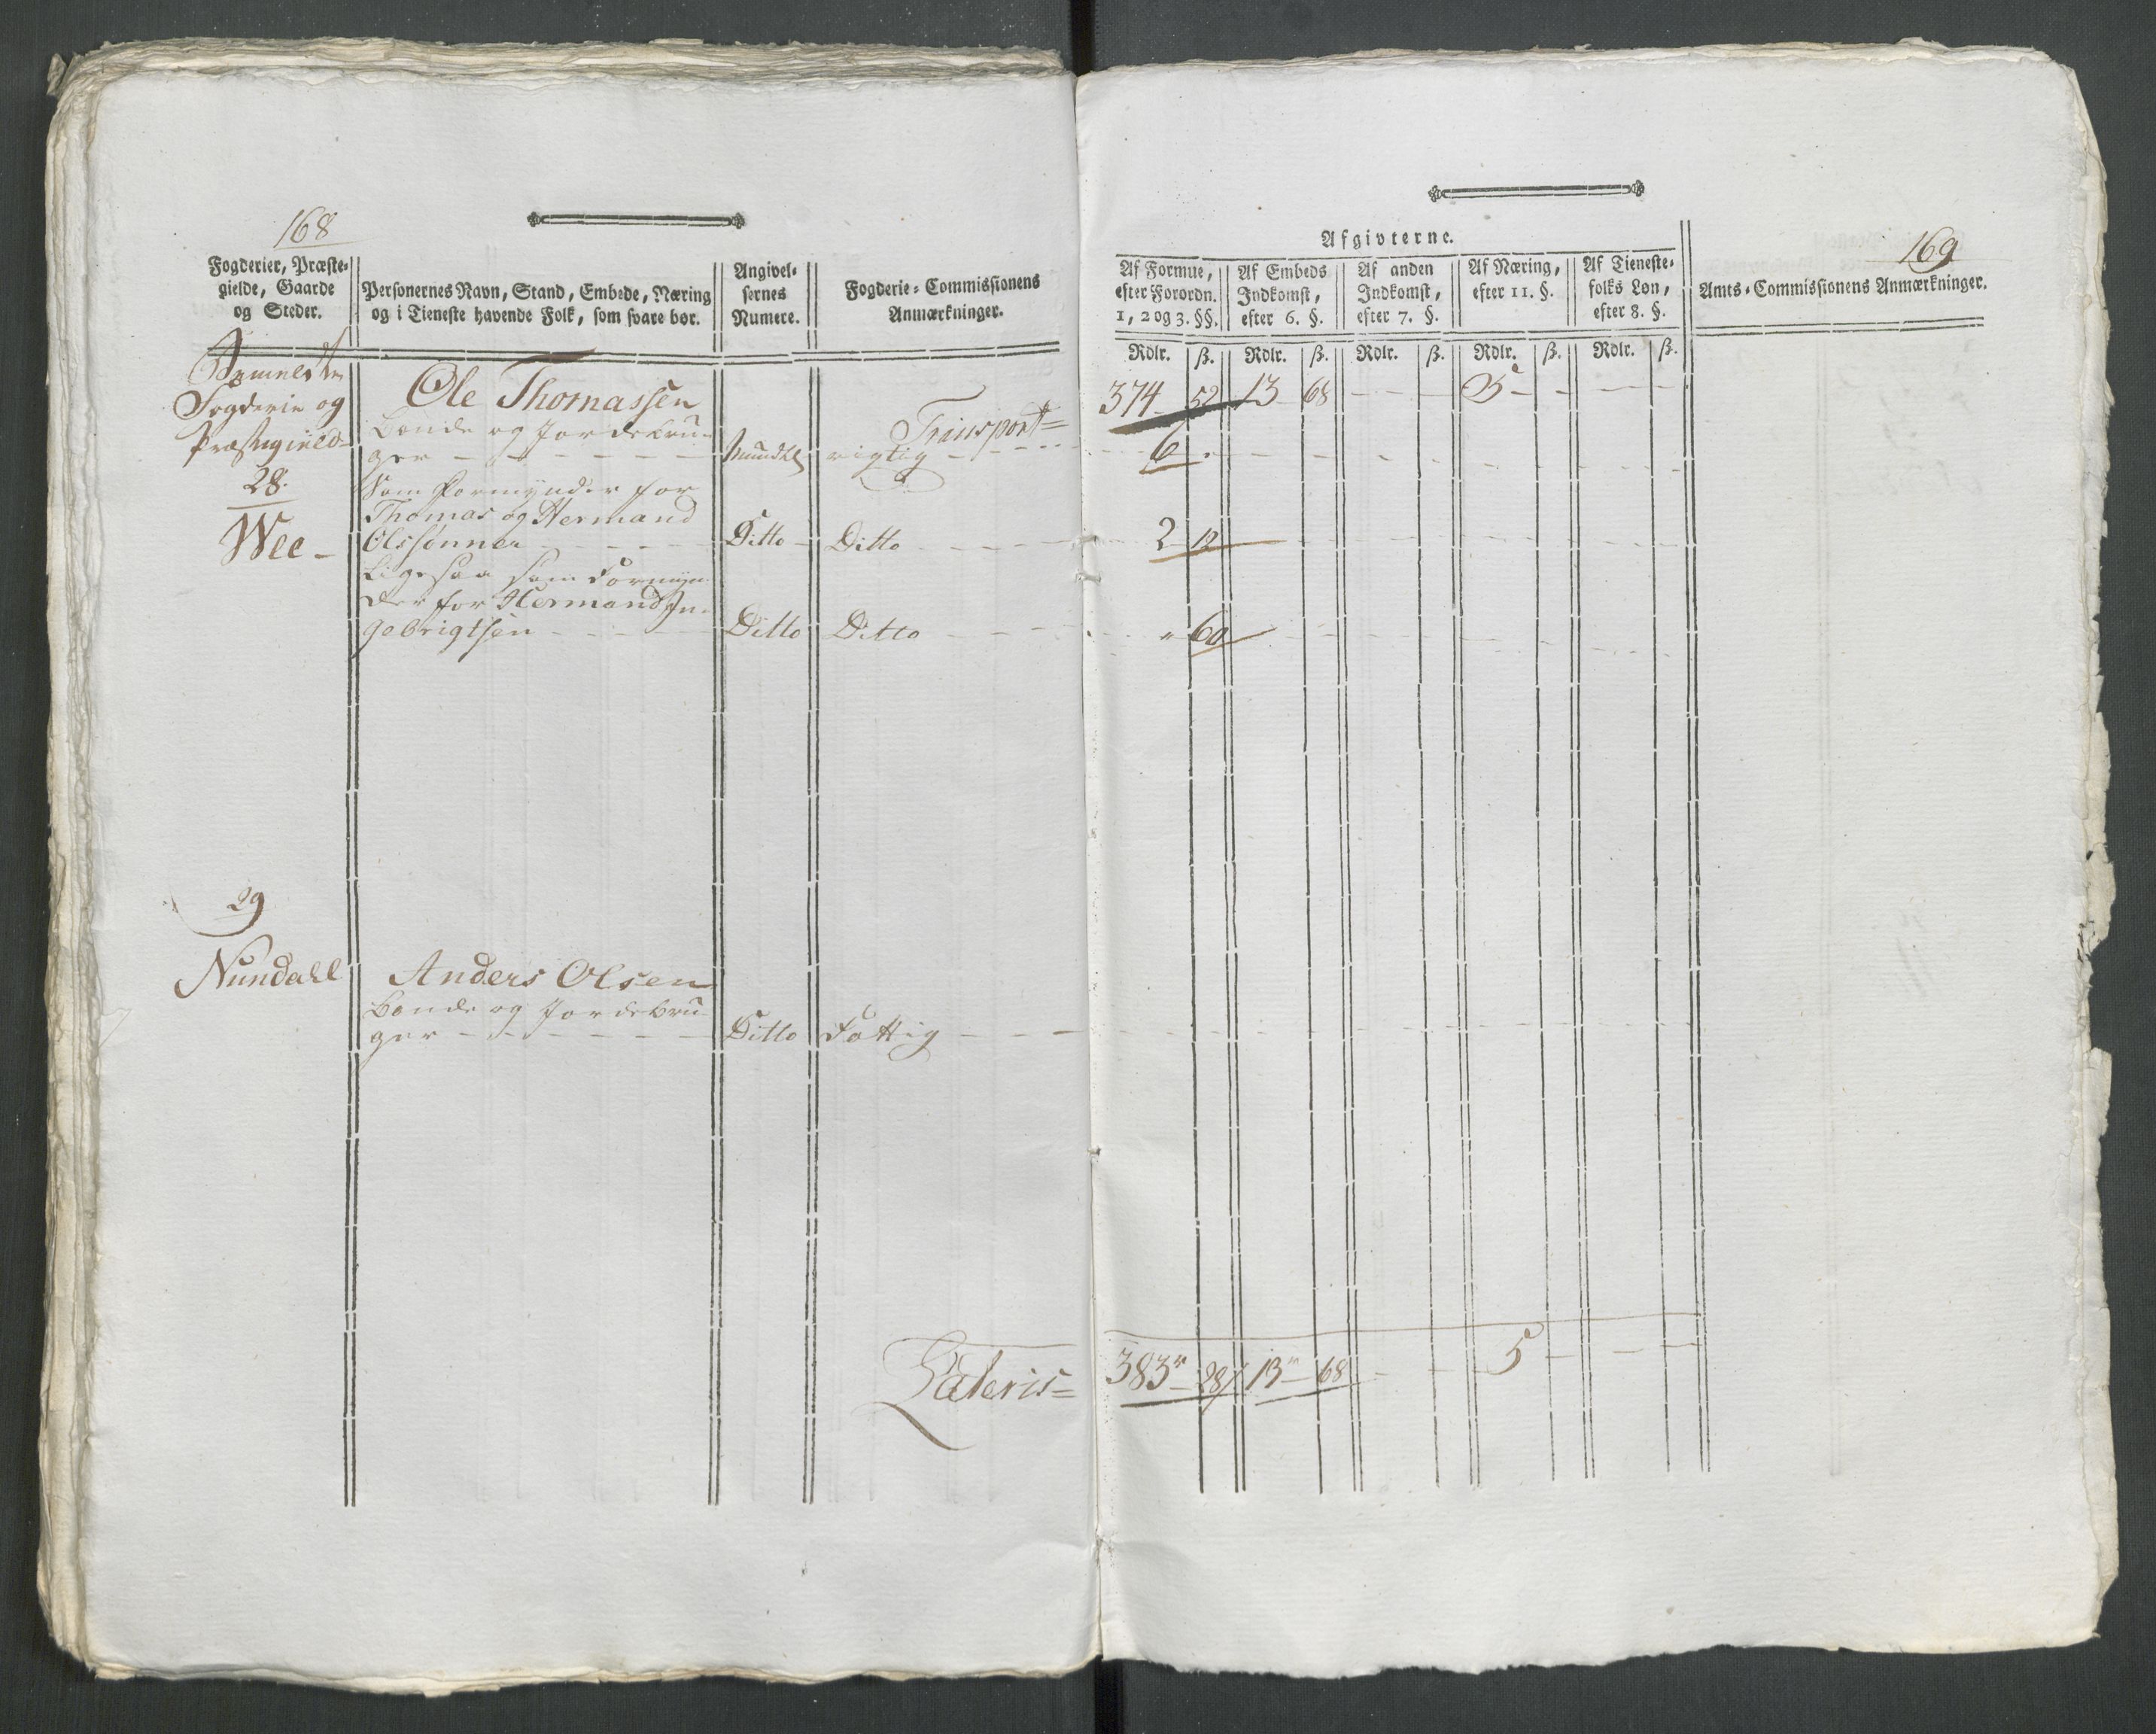 168
Fogderier, Præste-
gielde, Gaarde
og Steder.
Personernes Navn, Stand, Embede, Næring
og i Tieneste havende Folk, som svare bør.
Angivel-
sernes
Numere.
Fogderie-Commissionens
Anmærkninger.
Fogderie og
Præstegield
28.
Wee
Ole Thomassen
Bonde og Jordebru-
ger
Mundtl
Transport
rigtig
Som Formynder for
Thomas og Hermand
Olssønner
Ditto
Ditto
Ligesaa som Formyn-
der for Hermand In-
gebrigtsen
Ditto
Ditto
29
Nundall
Anders Olsen
Bonde og Jordebru-
ger
Ditto
Fattig
Lateris
169
Afgivterne.
Af Formue,
efter Forordn.
1, 2 og 3. §§.
Af Embeds
Indkomst,
efter 6. §.
Af anden
Indkomst,
efter 7. §.
Af Næring,
efter 11. §.
Af Tieneste-
folks Løn,
efter 8. §.
Amts-Commissionens Anmærkninger.
Rdlr. ß. Rdlr. ß. Rdlr. ß. Rdlr. ß. Rdlr. ß.
374 52 13 68 5
6
2 12
" 60
383 28 13 68 5